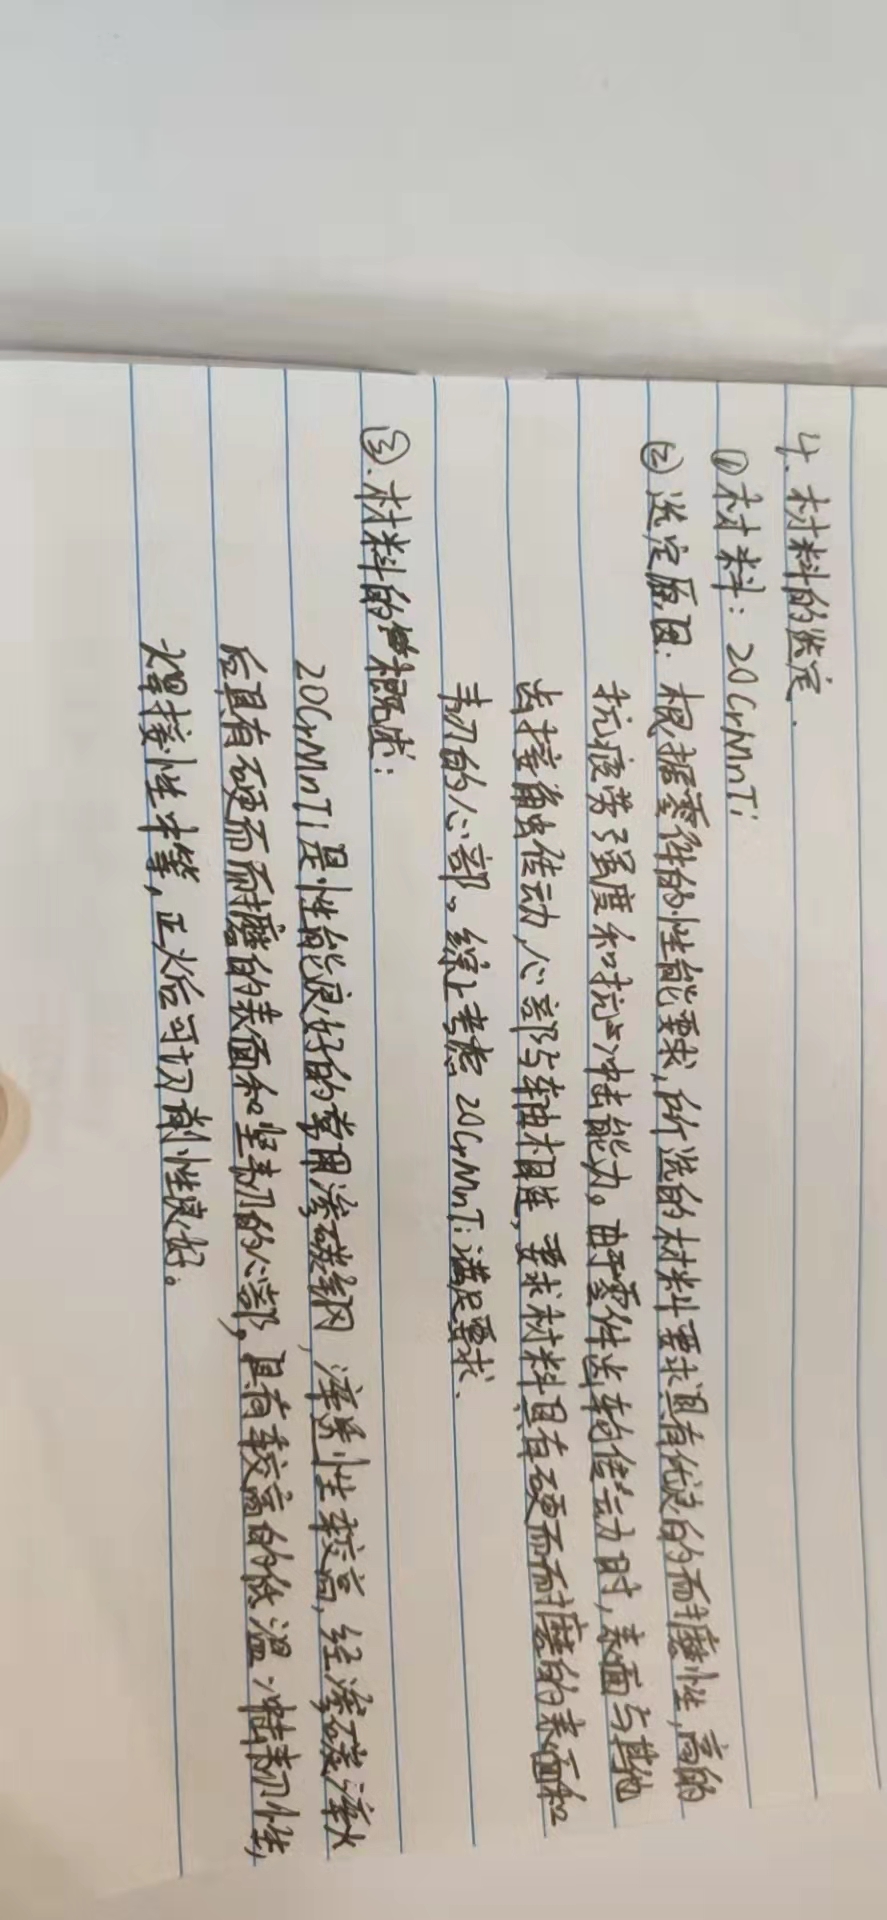 4. 材料的选定.
①材料: 20CrMnTi
②选定原因: 根据零件的性能要求,所选的材料要求具有优良的耐磨性,高的
抗疲劳强度和抗冲击能力。由于零件齿轮传动时,表面与其他
齿接触传动,心部与轴相连,要求材料具有硬而耐磨的表面和
韧的心部。综上考虑 20CrMnTi满足要求.
③.材料的概述:
20CrMnTi是性能良好的常用渗碳钢,淬透性较高,经渗碳淬火
后具有硬而耐磨的表面和坚韧的心部,具有较高的低温冲击韧性,
焊接性中等,正火后可切削性良好。